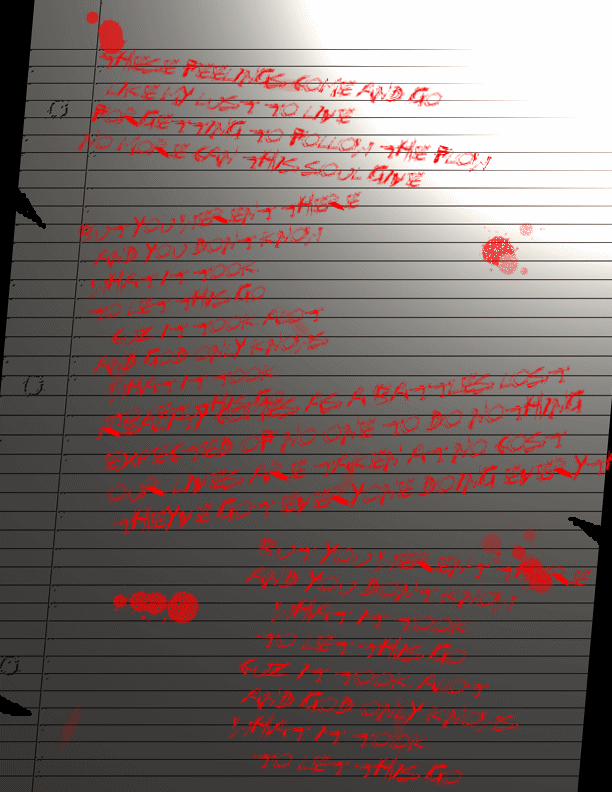 THESE FEELINGS COME AND GO
LIKE MY LUST TO LIVE
FORGETTING TO FOLLOW THE FLOW
NO MORE CAN THIS SOUL GIVE
BUT YOU WEREN'T THERE
AND YOU DON'T KNOW
WHAT IT TOOK
TO LET THIS GO
CUZ IT TOOK ALOT
AND GOD ONLY KNOWS
WHAT IT TOOK
REALITY COMES AS A BATTLES LOST
EXPECTED OF NO ONE TO DO NOTHING
OUR LIVES ARE TAKEN AT NO COST
THEYVE GOT EVERYONE DOING EVERYTH
BUT YOU WEREN'T THERE
AND YOU DON'T KNOW
WHAT IT TOOK
TO LET THIS GO
CUZ IT TOOK ALOT
AND GOD ONLY KNOWS
WHAT IT TOOK
TO LET THIS GO